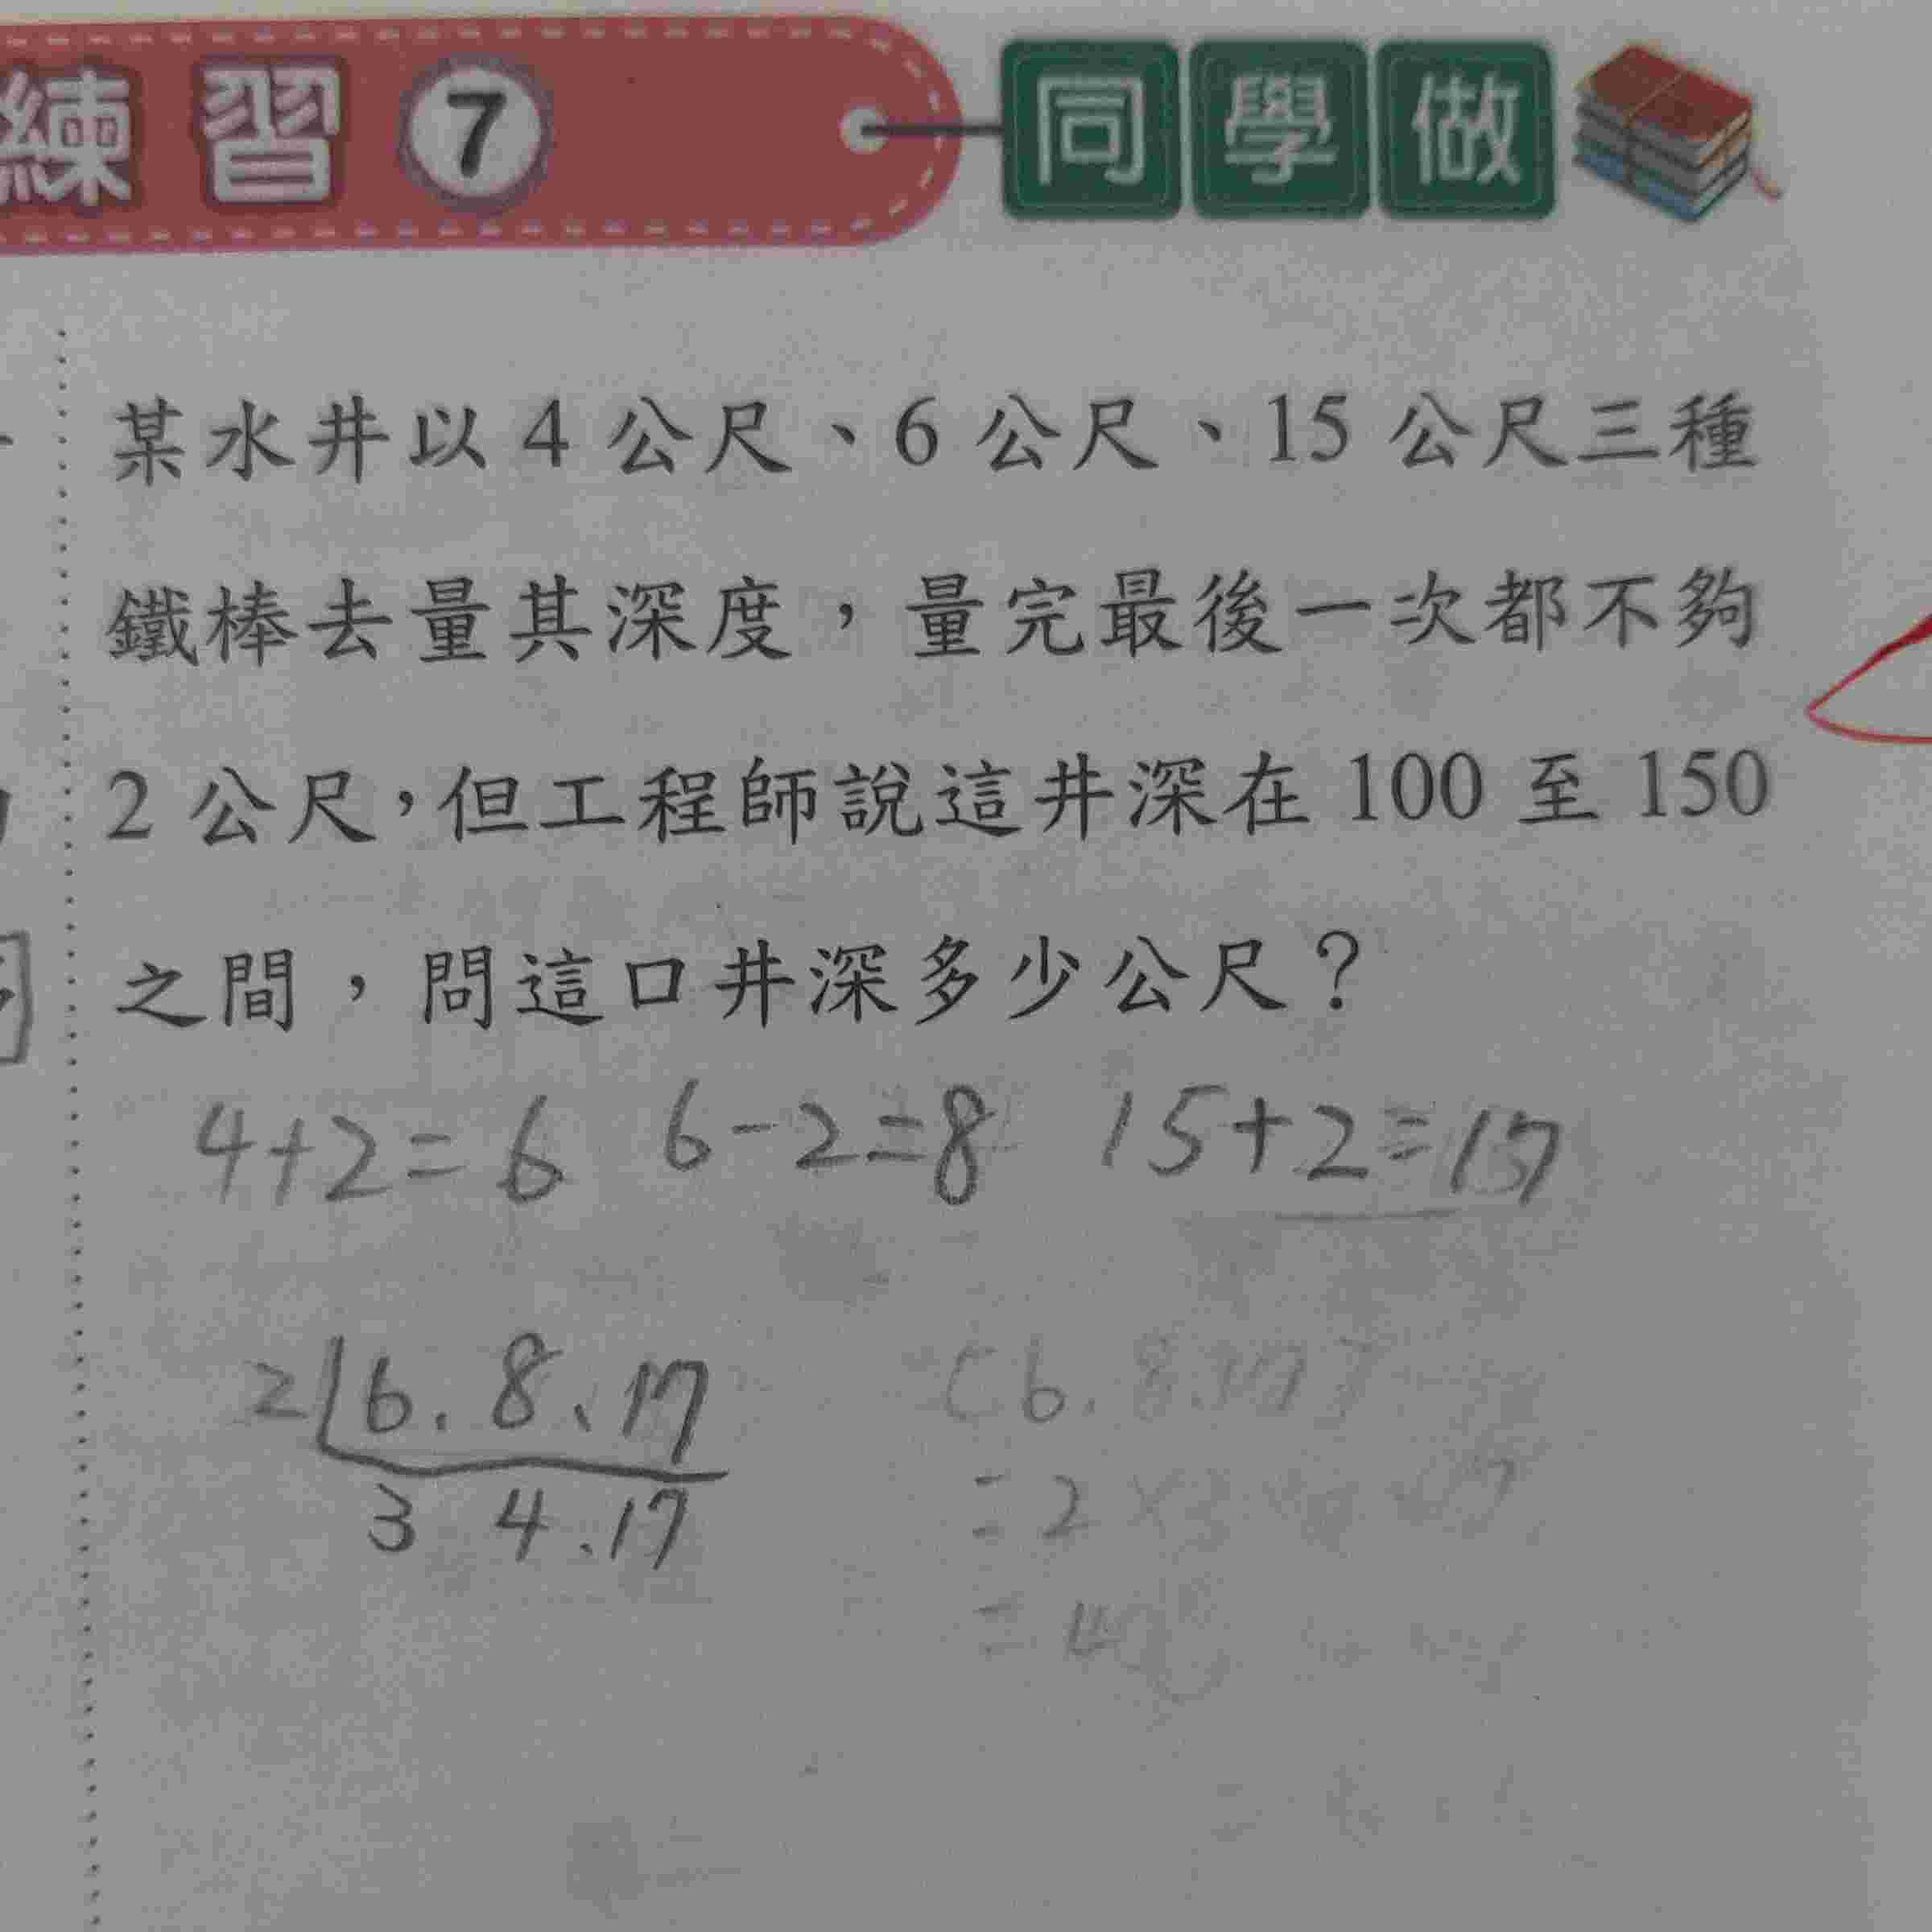 練習7 同學做
某水井以 4 公尺、6 公尺、15 公尺三種
鐵棒去量其深度，量完最後一次都不夠
2 公尺，但工程師說這井深在 100 至 150
之間，問這口井深多少公尺？
4+2=6 6-2=8 15+2=17
2 6. 8、17
3 4.17